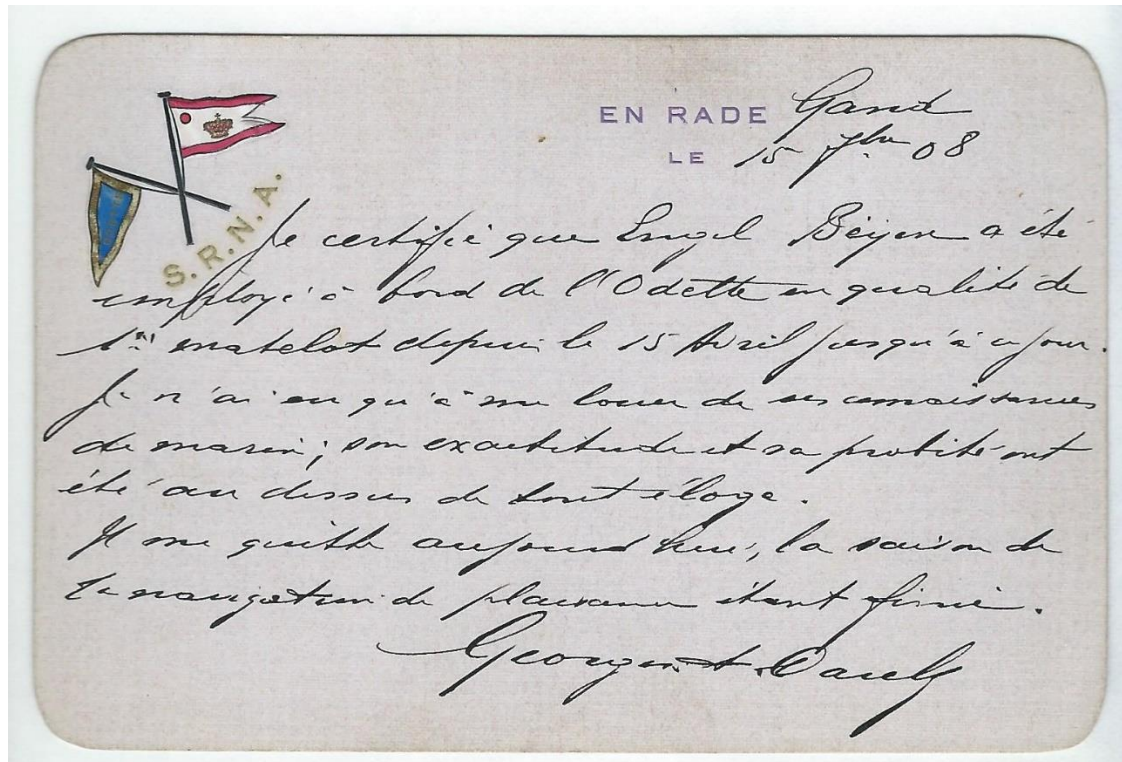 EN RADE Gand
LE 15 7bre 08
S.R.N.A.
Je certifie que Engel Beijen a été
employé à bord de l'Odette en qualité de
1er matelot depuis le 15 Avril jusqu'à ce jour.
Je n'ai eu qu'à me louer de ses connaissances
de marin; son exactitude et sa probité ont
été au dessus de tout éloge.
Il me quitte aujourd'hui, la saison de
la navigation de plaisance étant finie.